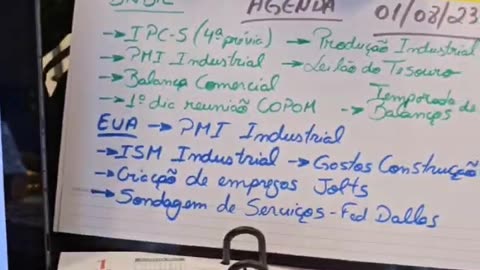 AGENDA 01/08/23
→ IPC-S (4ª prévia) → Produção Industrial
→ PMI Industrial → Leilão do Tesouro
→ Balança Comercial
→ 1º dia reunião COPOM → Temporada de Balanços
EUA → PMI Industrial
→ ISM Industrial → Gastos Construção
→ Criação de empregos Jolts
→ Sondagem de Serviços - Fed Dallas